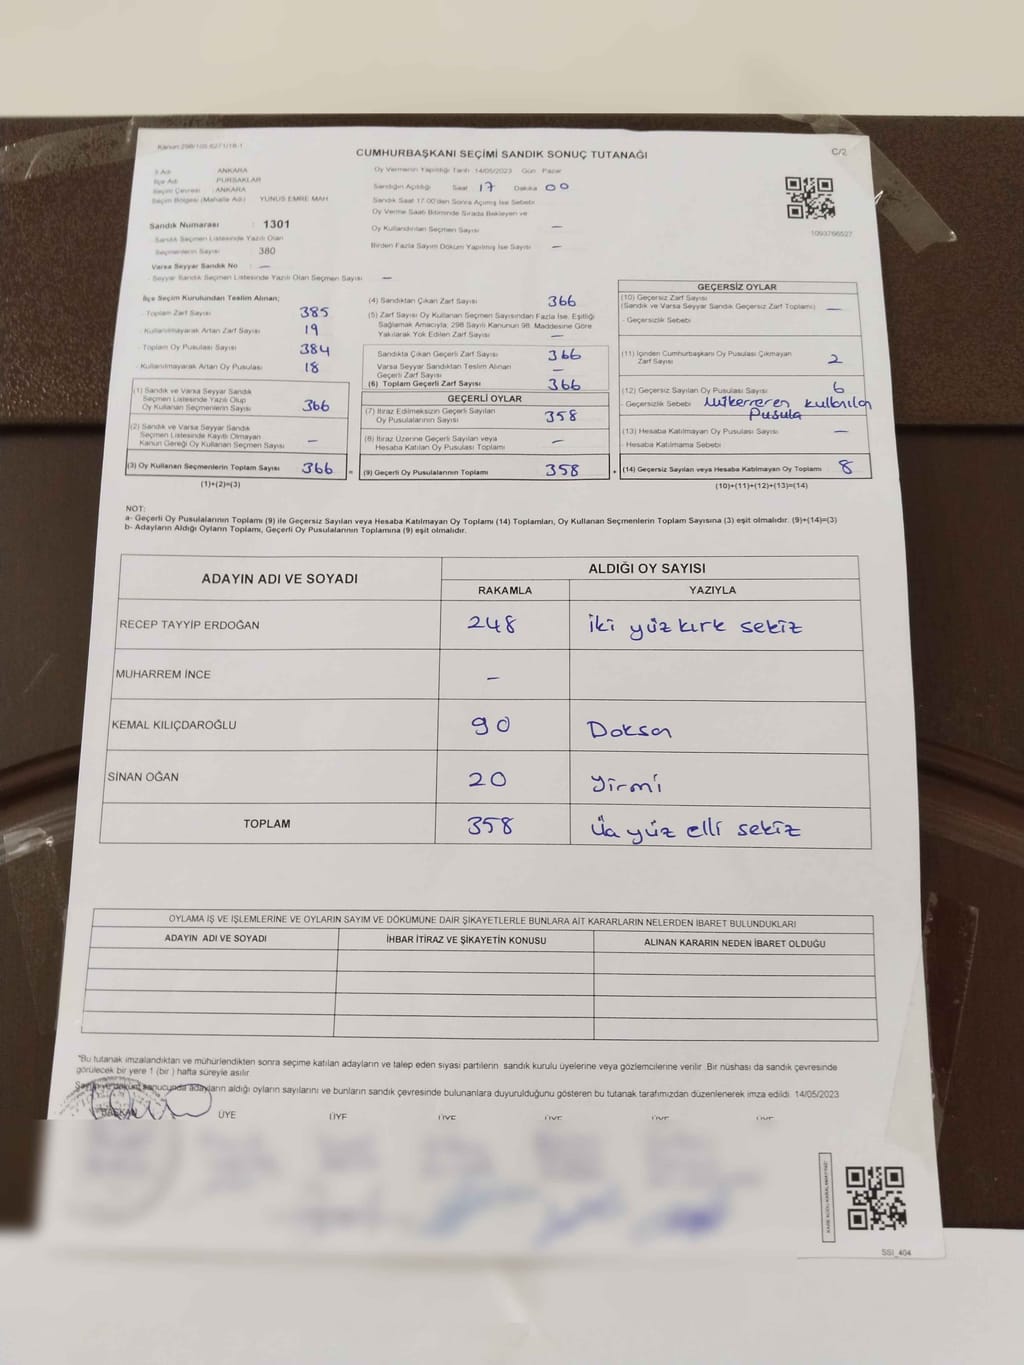 Kanun:298/105,6271/18-1
CUMHURBAŞKANI SEÇİMİ SANDIK SONUÇ TUTANAĞI
C/2
İl Adı ANKARA
İlçe Adı PURSAKLAR
Seçim Çevresi : ANKARA
Seçim Bölgesi (Mahalle Adı) YUNUS EMRE MAH
Sandık Numarası : 1301
- Sandık Seçmen Listesinde Yazılı Olan
Seçmenlerin Sayısı 380
Varsa Seyyar Sandık No : —
- Seyyar Sandık Seçmen Listesinde Yazılı Olan Seçmen Sayısı —
Oy Vermenin Yapıldığı Tarih 14/05/2023 Gün Pazar
Sandığın Açıldığı Saat 17 Dakika 00
Sandık Saat 17.00'den Sonra Açılmış İse Sebebi
Oy Verme Saati Bitiminde Sırada Bekleyen ve
Oy Kullandırılan Seçmen Sayısı —
Birden Fazla Sayım Döküm Yapılmış İse Sayısı —
1093766527
İlçe Seçim Kurulundan Teslim Alınan;
- Toplam Zarf Sayısı 385
- Kullanılmayarak Artan Zarf Sayısı 19
- Toplam Oy Pusulası Sayısı 384
- Kullanılmayarak Artan Oy Pusulası 18
(1) Sandık ve Varsa Seyyar Sandık
Seçmen Listesinde Yazılı Olup
Oy Kullanan Seçmenlerin Sayısı 366
(2) Sandık ve Varsa Seyyar Sandık
Seçmen Listesinde Kayıtlı Olmayan
Kanun Gereği Oy Kullanan Seçmen Sayısı —
(3) Oy Kullanan Seçmenlerin Toplam Sayısı 366 =
(1)+(2)=(3)
(4) Sandıktan Çıkan Zarf Sayısı 366
(5) Zarf Sayısı Oy Kullanan Seçmen Sayısından Fazla İse, Eşitliği
Sağlamak Amacıyla; 298 Sayılı Kanunun 98. Maddesine Göre
Yakılarak Yok Edilen Zarf Sayısı —
Sandıkta Çıkan Geçerli Zarf Sayısı 366
Varsa Seyyar Sandıktan Teslim Alınan
Geçerli Zarf Sayısı —
(6) Toplam Geçerli Zarf Sayısı 366
GEÇERLİ OYLAR
(7) İtiraz Edilmeksizin Geçerli Sayılan
Oy Pusulalarının Sayısı 358
(8) İtiraz Üzerine Geçerli Sayılan veya
Hesaba Katılan Oy Pusulası Sayısı —
(9) Geçerli Oy Pusulalarının Toplamı 358 +
GEÇERSİZ OYLAR
(10) Geçersiz Zarf Sayısı
(Sandık ve Varsa Seyyar Sandık Geçersiz Zarf Toplamı) —
- Geçersizlik Sebebi
(11) İçinden Cumhurbaşkanı Oy Pusulası Çıkmayan
Zarf Sayısı 2
(12) Geçersiz Sayılan Oy Pusulası Sayısı 6
- Geçersizlik Sebebi Mükerreren kullanılan
Pusula
(13) Hesaba Katılmayan Oy Pusulası Sayısı —
- Hesaba Katılmama Sebebi
(14) Geçersiz Sayılan veya Hesaba Katılmayan Oy Toplamı 8
(10)+(11)+(12)+(13)=(14)
NOT:
a- Geçerli Oy Pusulalarının Toplamı (9) ile Geçersiz Sayılan veya Hesaba Katılmayan Oy Toplamı (14) Toplamları, Oy Kullanan Seçmenlerin Toplam Sayısına (3) eşit olmalıdır. (9)+(14)=(3)
b- Adayların Aldığı Oyların Toplamı, Geçerli Oy Pusulalarının Toplamına (9) eşit olmalıdır.
ADAYIN ADI VE SOYADI ALDIĞI OY SAYISI
RAKAMLA YAZIYLA
RECEP TAYYİP ERDOĞAN 248 iki yüz kırk sekiz
MUHARREM İNCE —
KEMAL KILIÇDAROĞLU 90 Doksan
SİNAN OĞAN 20 Yirmi
TOPLAM 358 Üç yüz elli sekiz
OYLAMA İŞ VE İŞLEMLERİNE VE OYLARIN SAYIM VE DÖKÜMÜNE DAİR ŞİKAYETLERLE BUNLARA AİT KARARLARIN NELERDEN İBARET BULUNDUKLARI
ADAYIN ADI VE SOYADI İHBAR İTİRAZ VE ŞİKAYETİN KONUSU ALINAN KARARIN NEDEN İBARET OLDUĞU
"Bu tutanak imzalandıktan ve mühürlendikten sonra seçime katılan adayların ve talep eden siyasi partilerin sandık kurulu üyelerine veya gözlemcilerine verilir .Bir nüshası da sandık çevresinde
görülecek bir yere 1 (bir ) hafta süreyle asılır
Sayım ve döküm sonucunda adayların aldığı oyların sayılarını ve bunların sandık çevresinde bulunanlara duyurulduğunu gösteren bu tutanak tarafımızdan düzenlenerek imza edildi. 14/05/2023
BAŞKAN ÜYE ÜYE ÜYE ÜYE ÜYE ÜYE
SSI_404